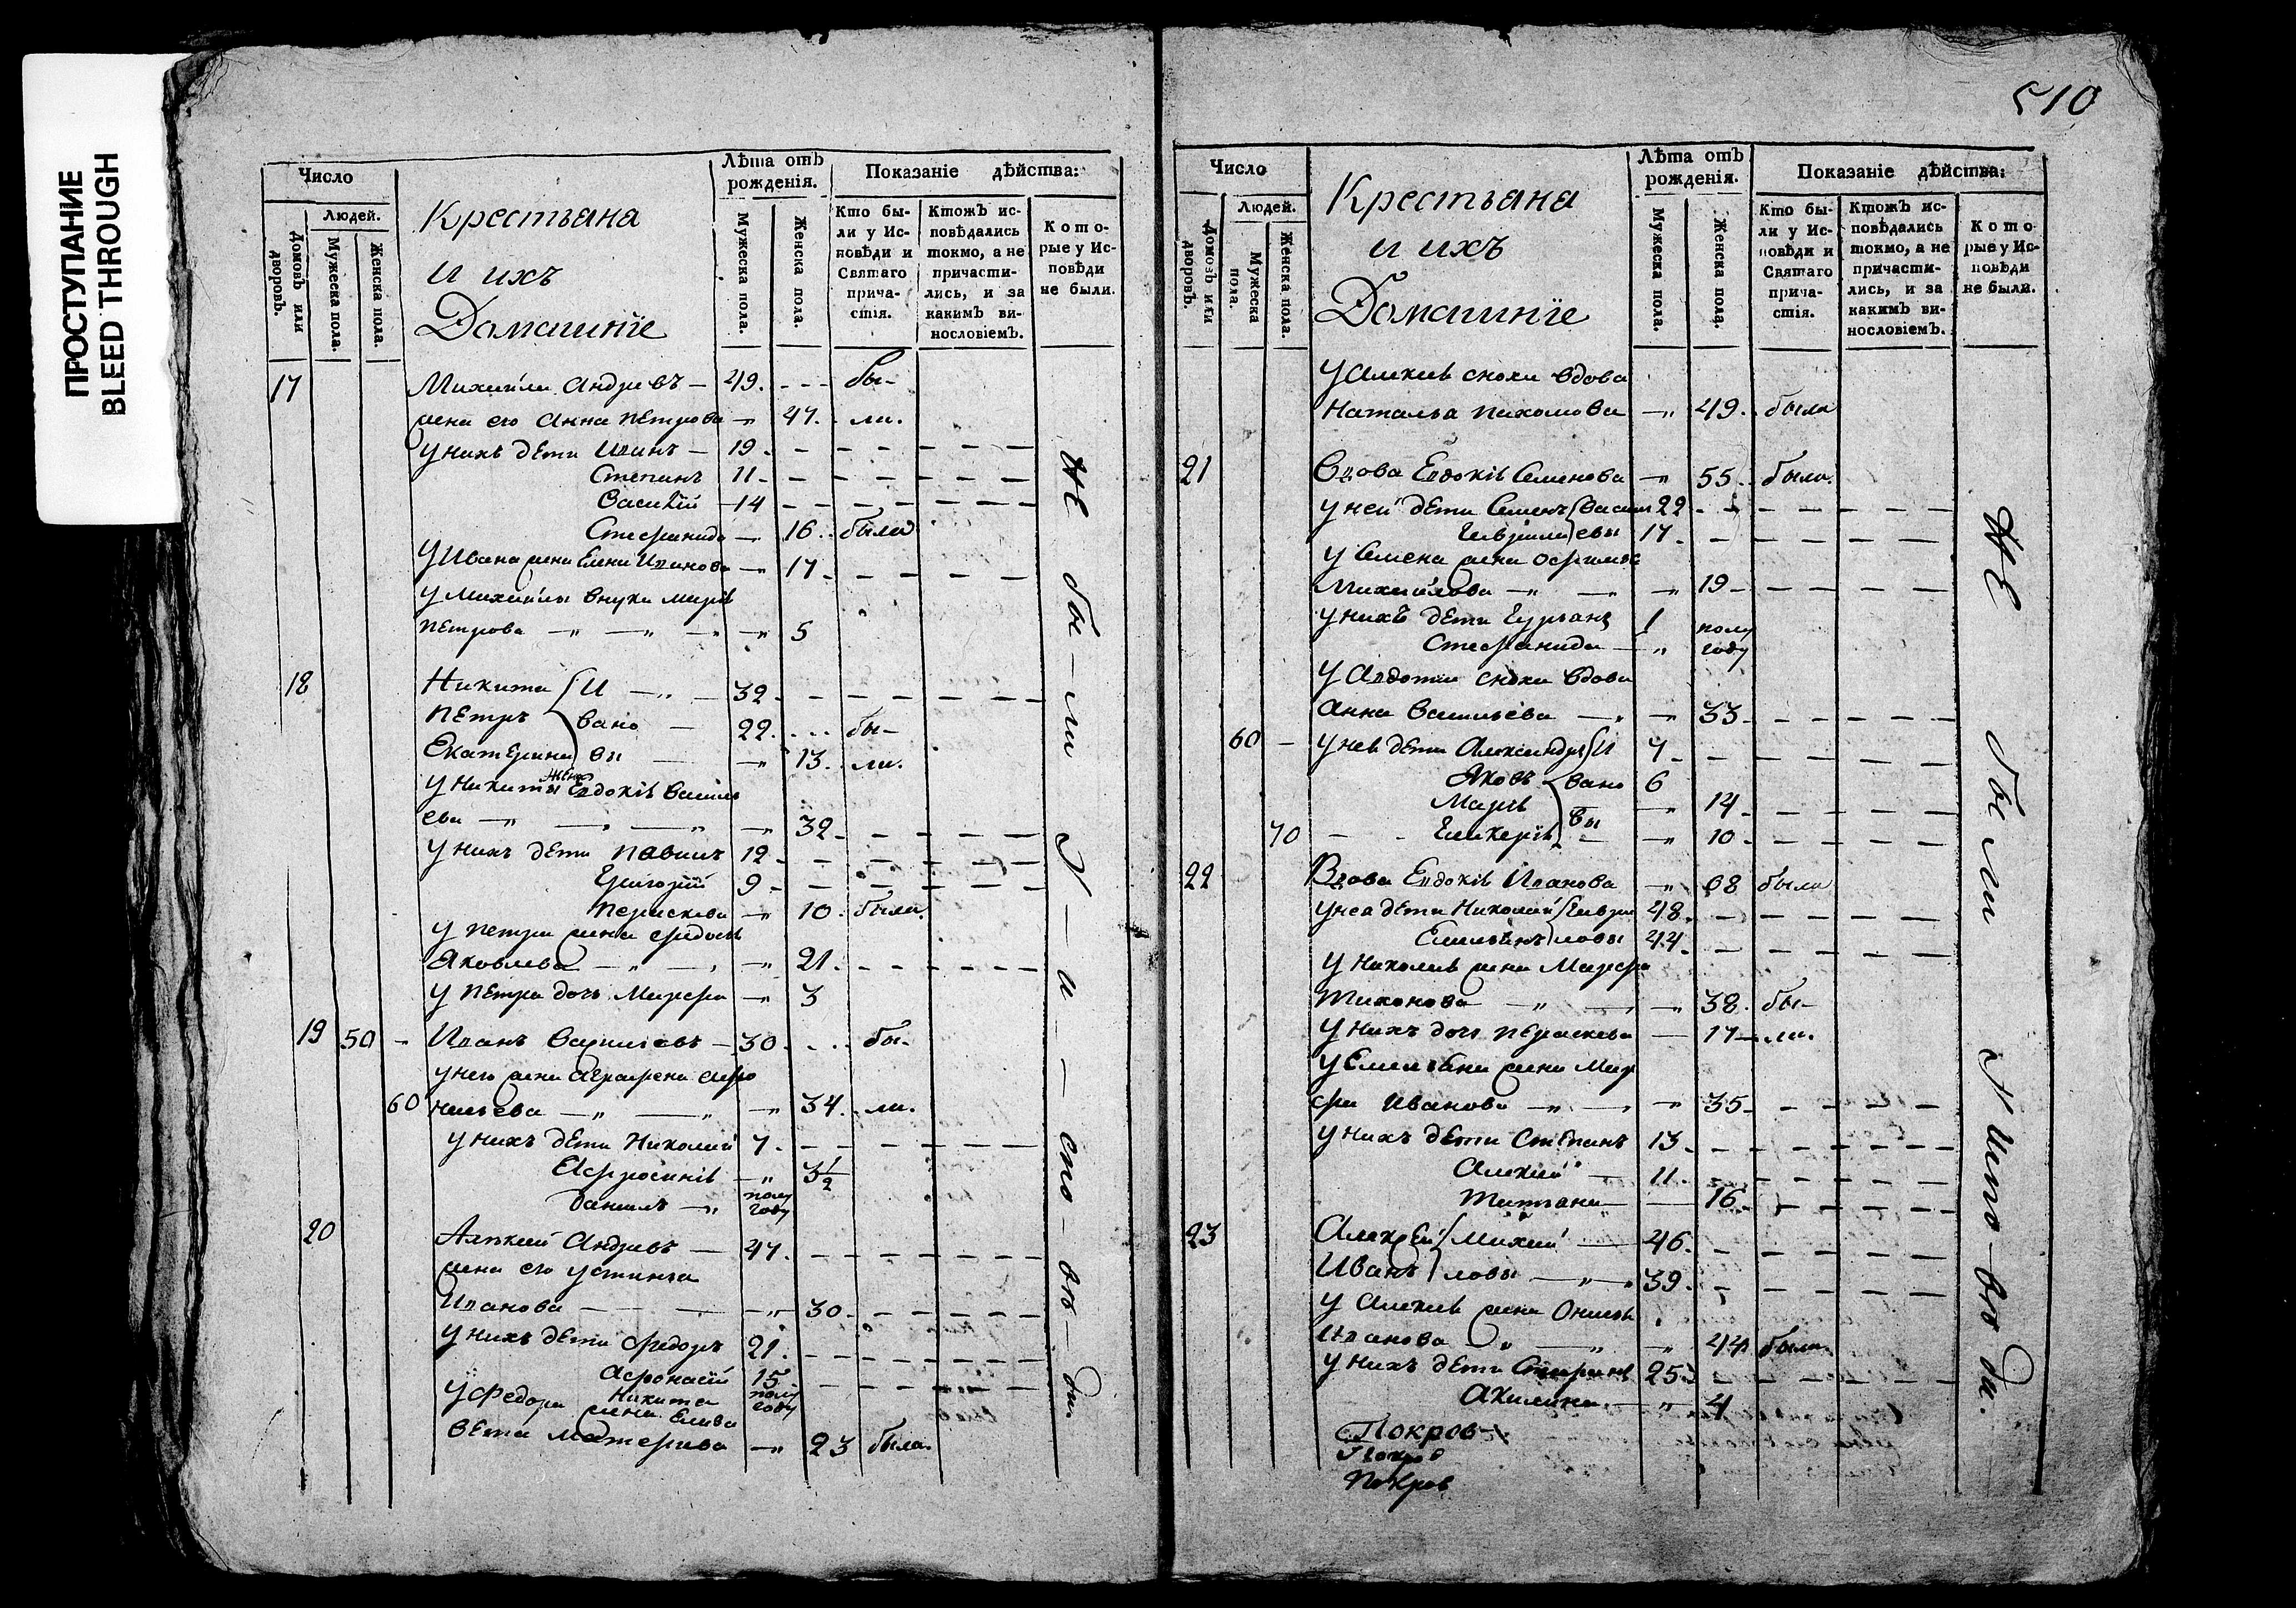 ПРОСТУПАНИЕ
BLEED THROUGH
510
Число
Людей.
Домовъ или дворовъ.
Мужеска пола.
Женска пола.
Крестьяна
и ихъ
Домашнїе
Лѣта отъ рожденія.
Мужеска пола.
Женска пола.
Показаніе дѣйства:
Кто были у Исповѣди и Святаго причастія.
Ктожъ исповѣдались токмо, а не причастились, и за какимъ винословіемъ.
Которые у Исповѣди не были.
17 Михаила Андревъ — 49. бы-
жена его Анна Петрова — 47. ли.
у нихъ дѣти Иванъ — 19
Степанъ 11
Василїй 14
Стефанида — 16. была
у Ивана жена Елена Иванова — 17
у Михаилы внука Марїя
Петрова — 5
18 Никита И — 32
Петръ вано — 22. бы-
Екатерина вы — 13. ли.
у Никиты жена Евдокїя Василь
ева — 32
у нихъ дѣти Павелъ 12
Григорїй 9
Параскева — 10. была
у Петра жена Федосья
Яковлева — 21
у Петра дочь Марфа — 3
19 50 - Иванъ Васильевъ — 30. бы-
у него жена Аграфена Афо
60 насьева — 34. ли.
у нихъ дѣти Николай 7
Афросинїя — 3 1/2
Данилъ — полу году
20 Алексей Андревъ — 47
жена его Устинья
Иванова — 30
у нихъ дѣти Федоръ 21
Афонасїй 15
Никита полу году
у Федора жена Елиза
вета — 23 была.
не бы-ли у-и-спо-вѣ-ди.
Число
Людей.
Домовъ или дворовъ.
Мужеска пола.
Женска пола.
Крестьяна
и ихъ
Домашнїе
Лѣта отъ рожденія.
Мужеска пола.
Женска пола.
Показаніе дѣйства:
Кто были у Исповѣди и Святаго причастія.
Ктожъ исповѣдались токмо, а не причастились, и за какимъ винословіемъ.
Которые у Исповѣди не были.
у Алексея сноха вдова
Наталья Пахомова — 49. была
21 Вдова Евдокїя Семенова — 55. была.
у ней дѣти Семенъ Васил 22
Гаврила евы 17
у Семена жена
Михайлова — 19
у нихъ дѣти 1
Стефанида — полу году
у Авдотьи сноха вдова
Анна Васильева — 33
60 - у нея дѣти Александръ И 7
Яковъ вано 6
Марїя вы — 14
70 - Гликерїя — 10
22 Вдова Евдокїя Иванова — 68 была
у нея дѣти Николай Гаври 48
Емельянъ ловы 44
у Николая жена Марфа
Тихонова — 38. бы-
у нихъ дочь Параскева — 17 ли.
у Емельяна жена Мар
фа Иванова — 35
у нихъ дѣти Степанъ 13
Алексей 11
Татьяна — 16
23 Алексей Михай — 46
Иванъ ловы — 39
у Алексея жена
Иванова — 44 была.
у нихъ дѣти 25
Акилина — 4
Покров
Покров
Покров
не были у испо-вѣди.